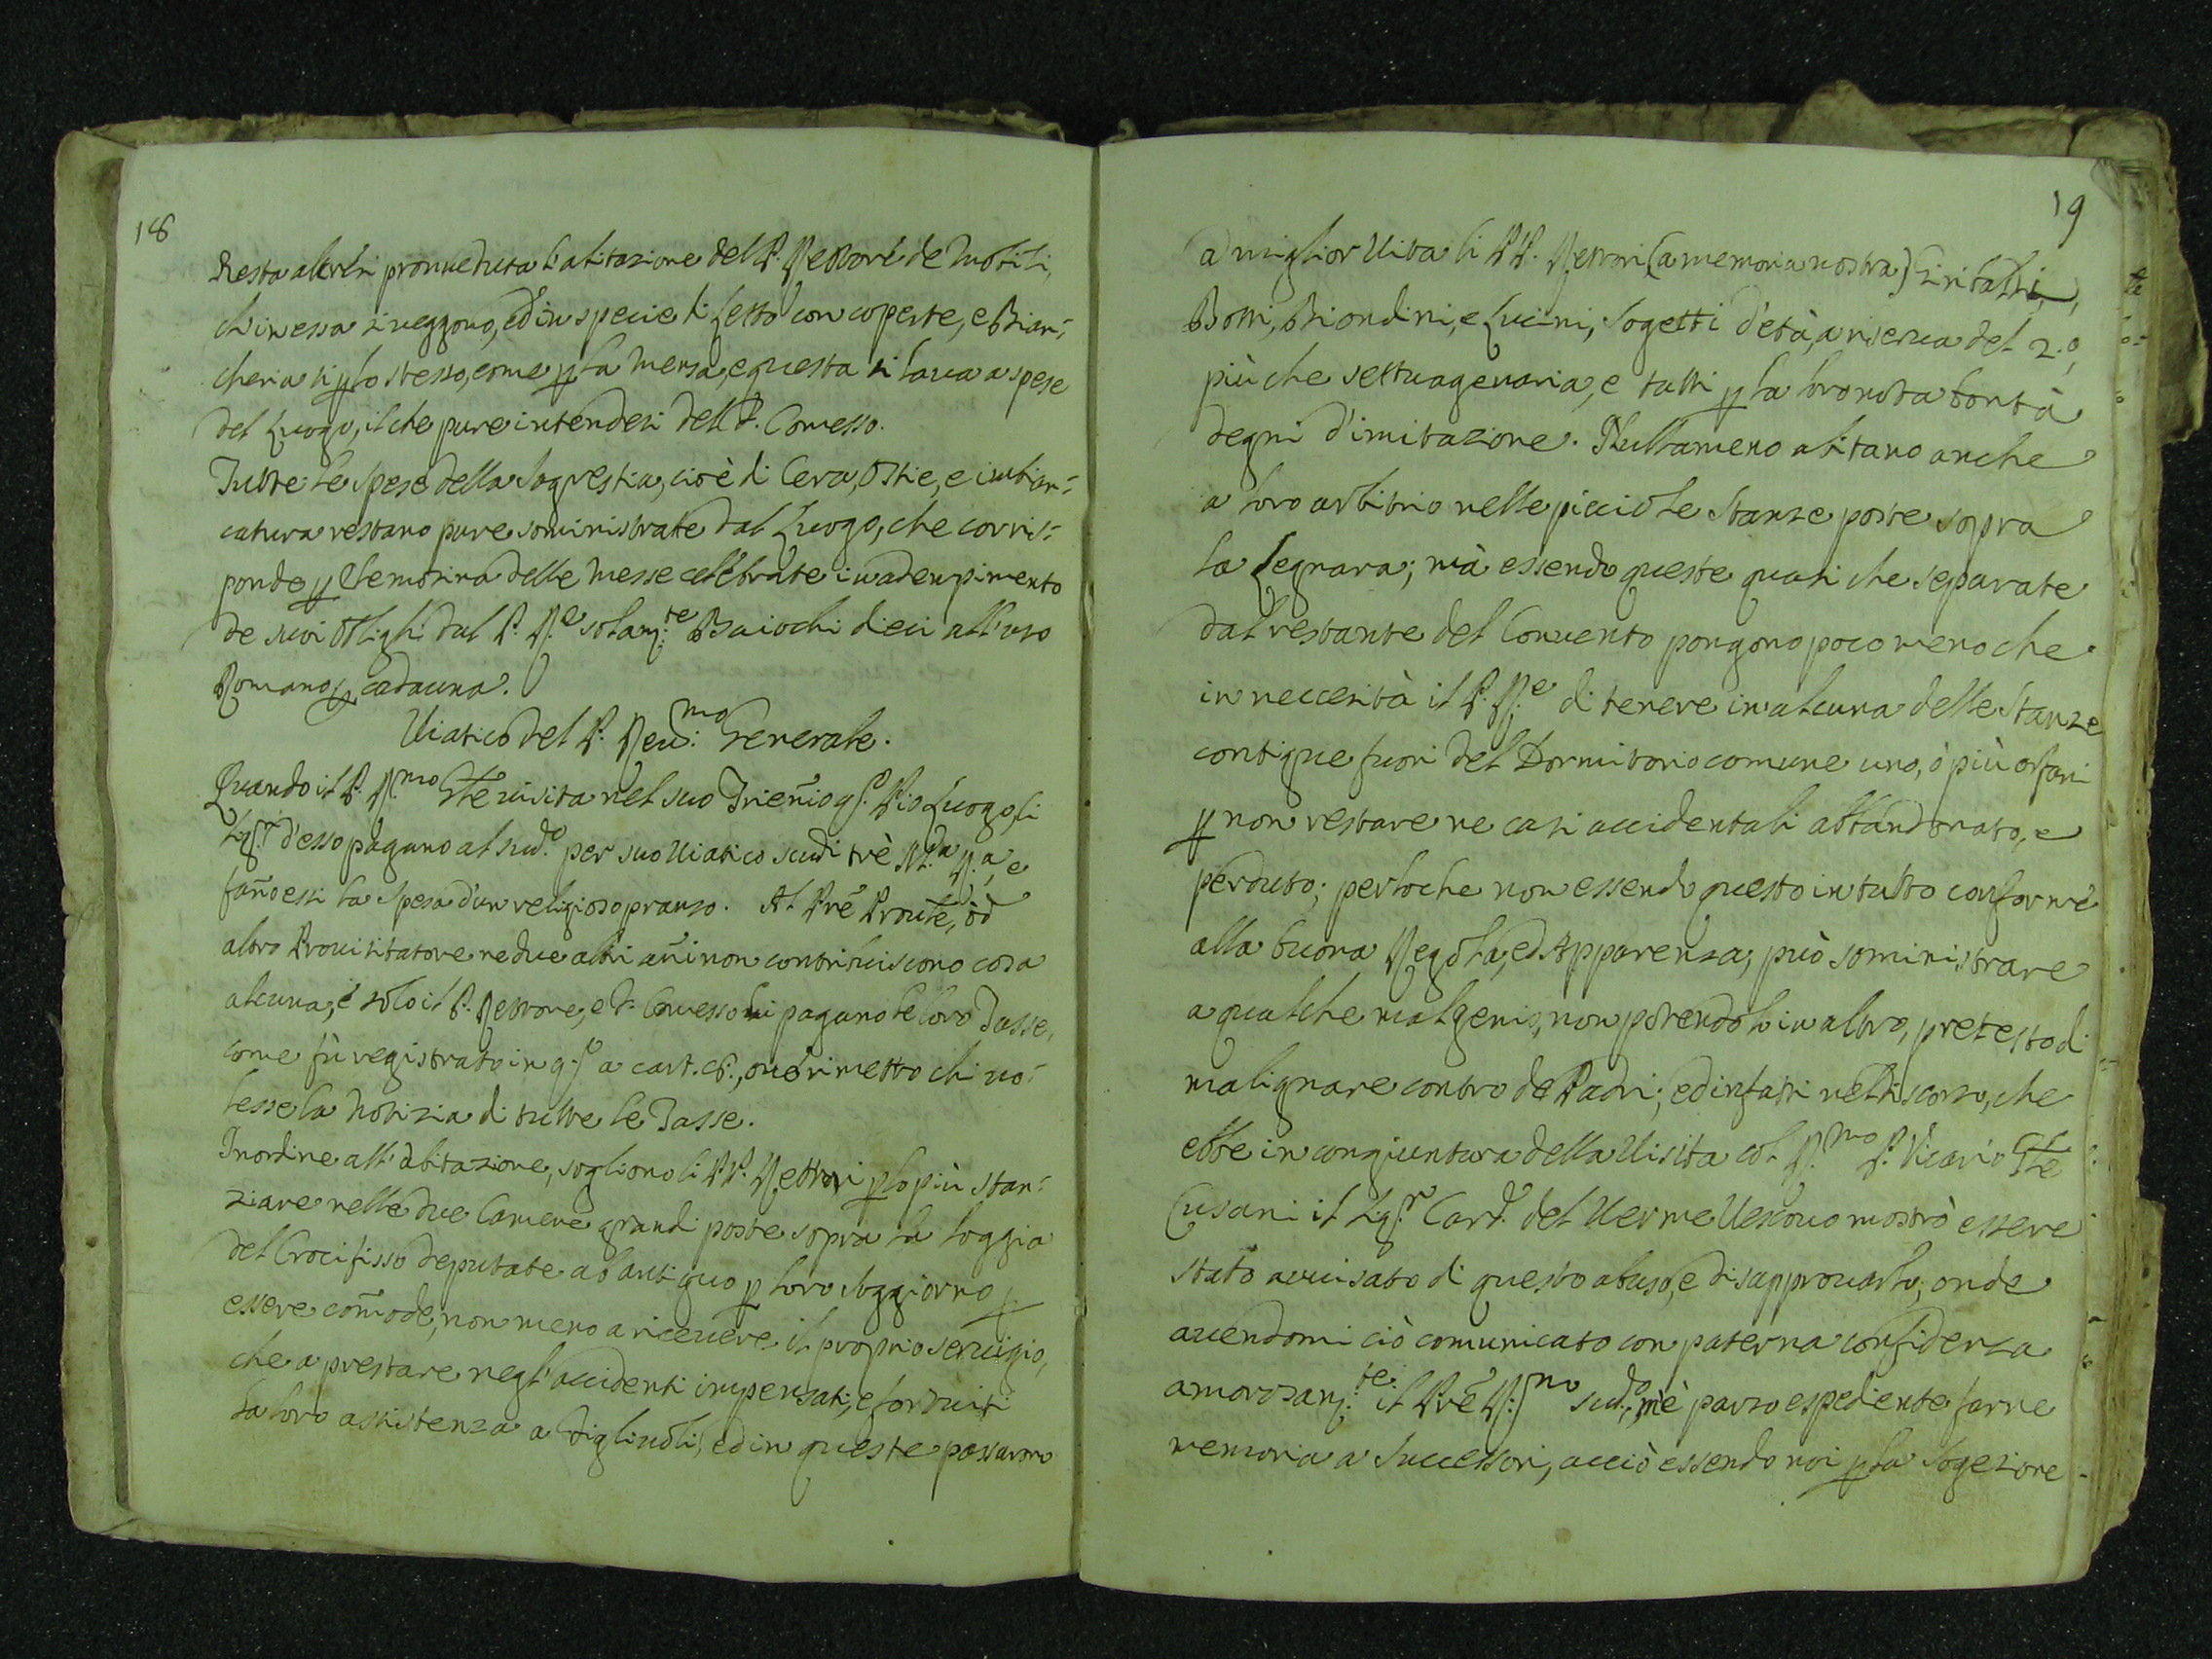 18
Resta altresi proueduta l'abitazione del P. Rettore de mobili,
ch'in essa si ueggono, ed in specie di Letto con coperte, e Bian-
cheria sì p lo stesso, come p la mensa, e questa si laua a spese
del Luogo, il che pure intendesi dell P. Comesso.
Tutte le spese della Sagrestia, cioè di Cera, Ostie, e imbian-
catura restano pure soministrate dal Luogo, che corris-
ponde p Elemosina delle messe celebrate in adempimento
de suoi Oblighi dal P. R.e solam.te Baiochi dieci all'uso
Romano p cadauna.
Uiatico del P. Reu.mo Generale.
Quando il P. R.mo Gnle uisita nel suo Trienio q.o Pio Luogo, li
Sig.ri d'esso pagano al sud.o per suo Uiatico scudi trè M.ta R.a, e
fano essi la spesa d'un religioso pranso. Al Pre Proule, òd
altro Prouisitatore ne due altri ani non contribuiscono cosa
alcuna, e solo il P. Rettore, e P. Comesso lui pagano le loro Tasse,
come fù registrato in q.o a cart. 6., oue rimetto chi uo-
lesse la notizia di tutte le Tasse.
In ordine all'abitazione, sogliono li PP. Rettori p lo più stan-
ziare nelle due Camere grandi poste sopra la loggia
del Crocifisso deputate ab antiquo p loro soggiorno p
essere comode, non meno a riceuere il proprio seruigio,
che a prestare negl'accidenti impensati, e fortuiti
la loro assistenza a Figliuoli, ed in queste passarono
19
a miglior Uita li PP. Rettori (a memoria nostra)
Botti, Biondini, e Lucini, sogetti d'età, a riserua del 2.o,
più che settuagenaria, e tutti p la loro nota bontà
degni d'imitazione. Nullameno abitano anche
a loro arbitrio nelle picciole stanze poste sopra
la Legnara; mà essendo queste quasi che separate
dal restante del Conuento pongono poco meno che
in neccesità il P. R.e di tenere in alcuna delle stanze
contigue fuori del Dormitorio comune uno, ò più orfani
p non restare ne casi accidentali abbandonato, e
perduto; perloche non essendo questo in tutto conforme
alla buona Regola, ed Apparenza, può soministrare
a qualche mal genio, non potendolo in altro, pretesto di
malignare contro de Padri; ed infatti nel discorso, che
ebbe in congiuntura della Uisita col R.mo P. Vicario Gnle
Cusani il Sig.r Card. del Uerme Uescouo mostrò essere
stato auuisato di questo abuso, e disapprouarlo; onde
auendomi ciò comunicato con paterna confidenza
amorosam.te il Pre R.mo sud.o, m'è parso espediente farne
memoria a Successori, acciò essendo noi p la sogezione